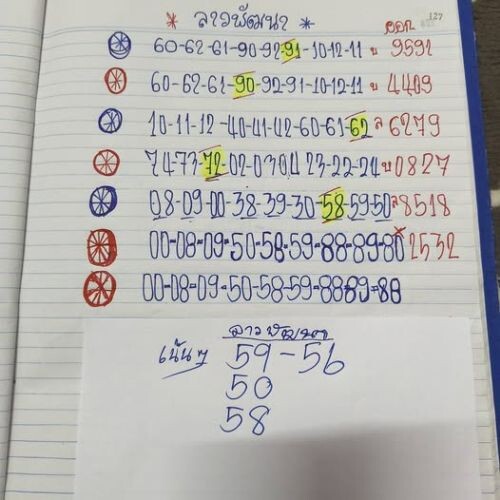 * ลาวพัฒนา * ออก 127
60-62-61-90-92-91-10-12-11 บ 9591
60-62-61-90-92-91-10-12-11 บ 4409
10-11-12-40-41-42-60-61-62 ล 6279
74-73-72-02-03-04 23-22-24 บ 0827
08-09-00-38-39-30-58-59-50 ล 8518
00-08-09-50-58-59-88-89-80 × 2532
00-08-09-50-58-59-88-89-80
ลาวพัฒนา
เน้นๆ 59-56
50
58